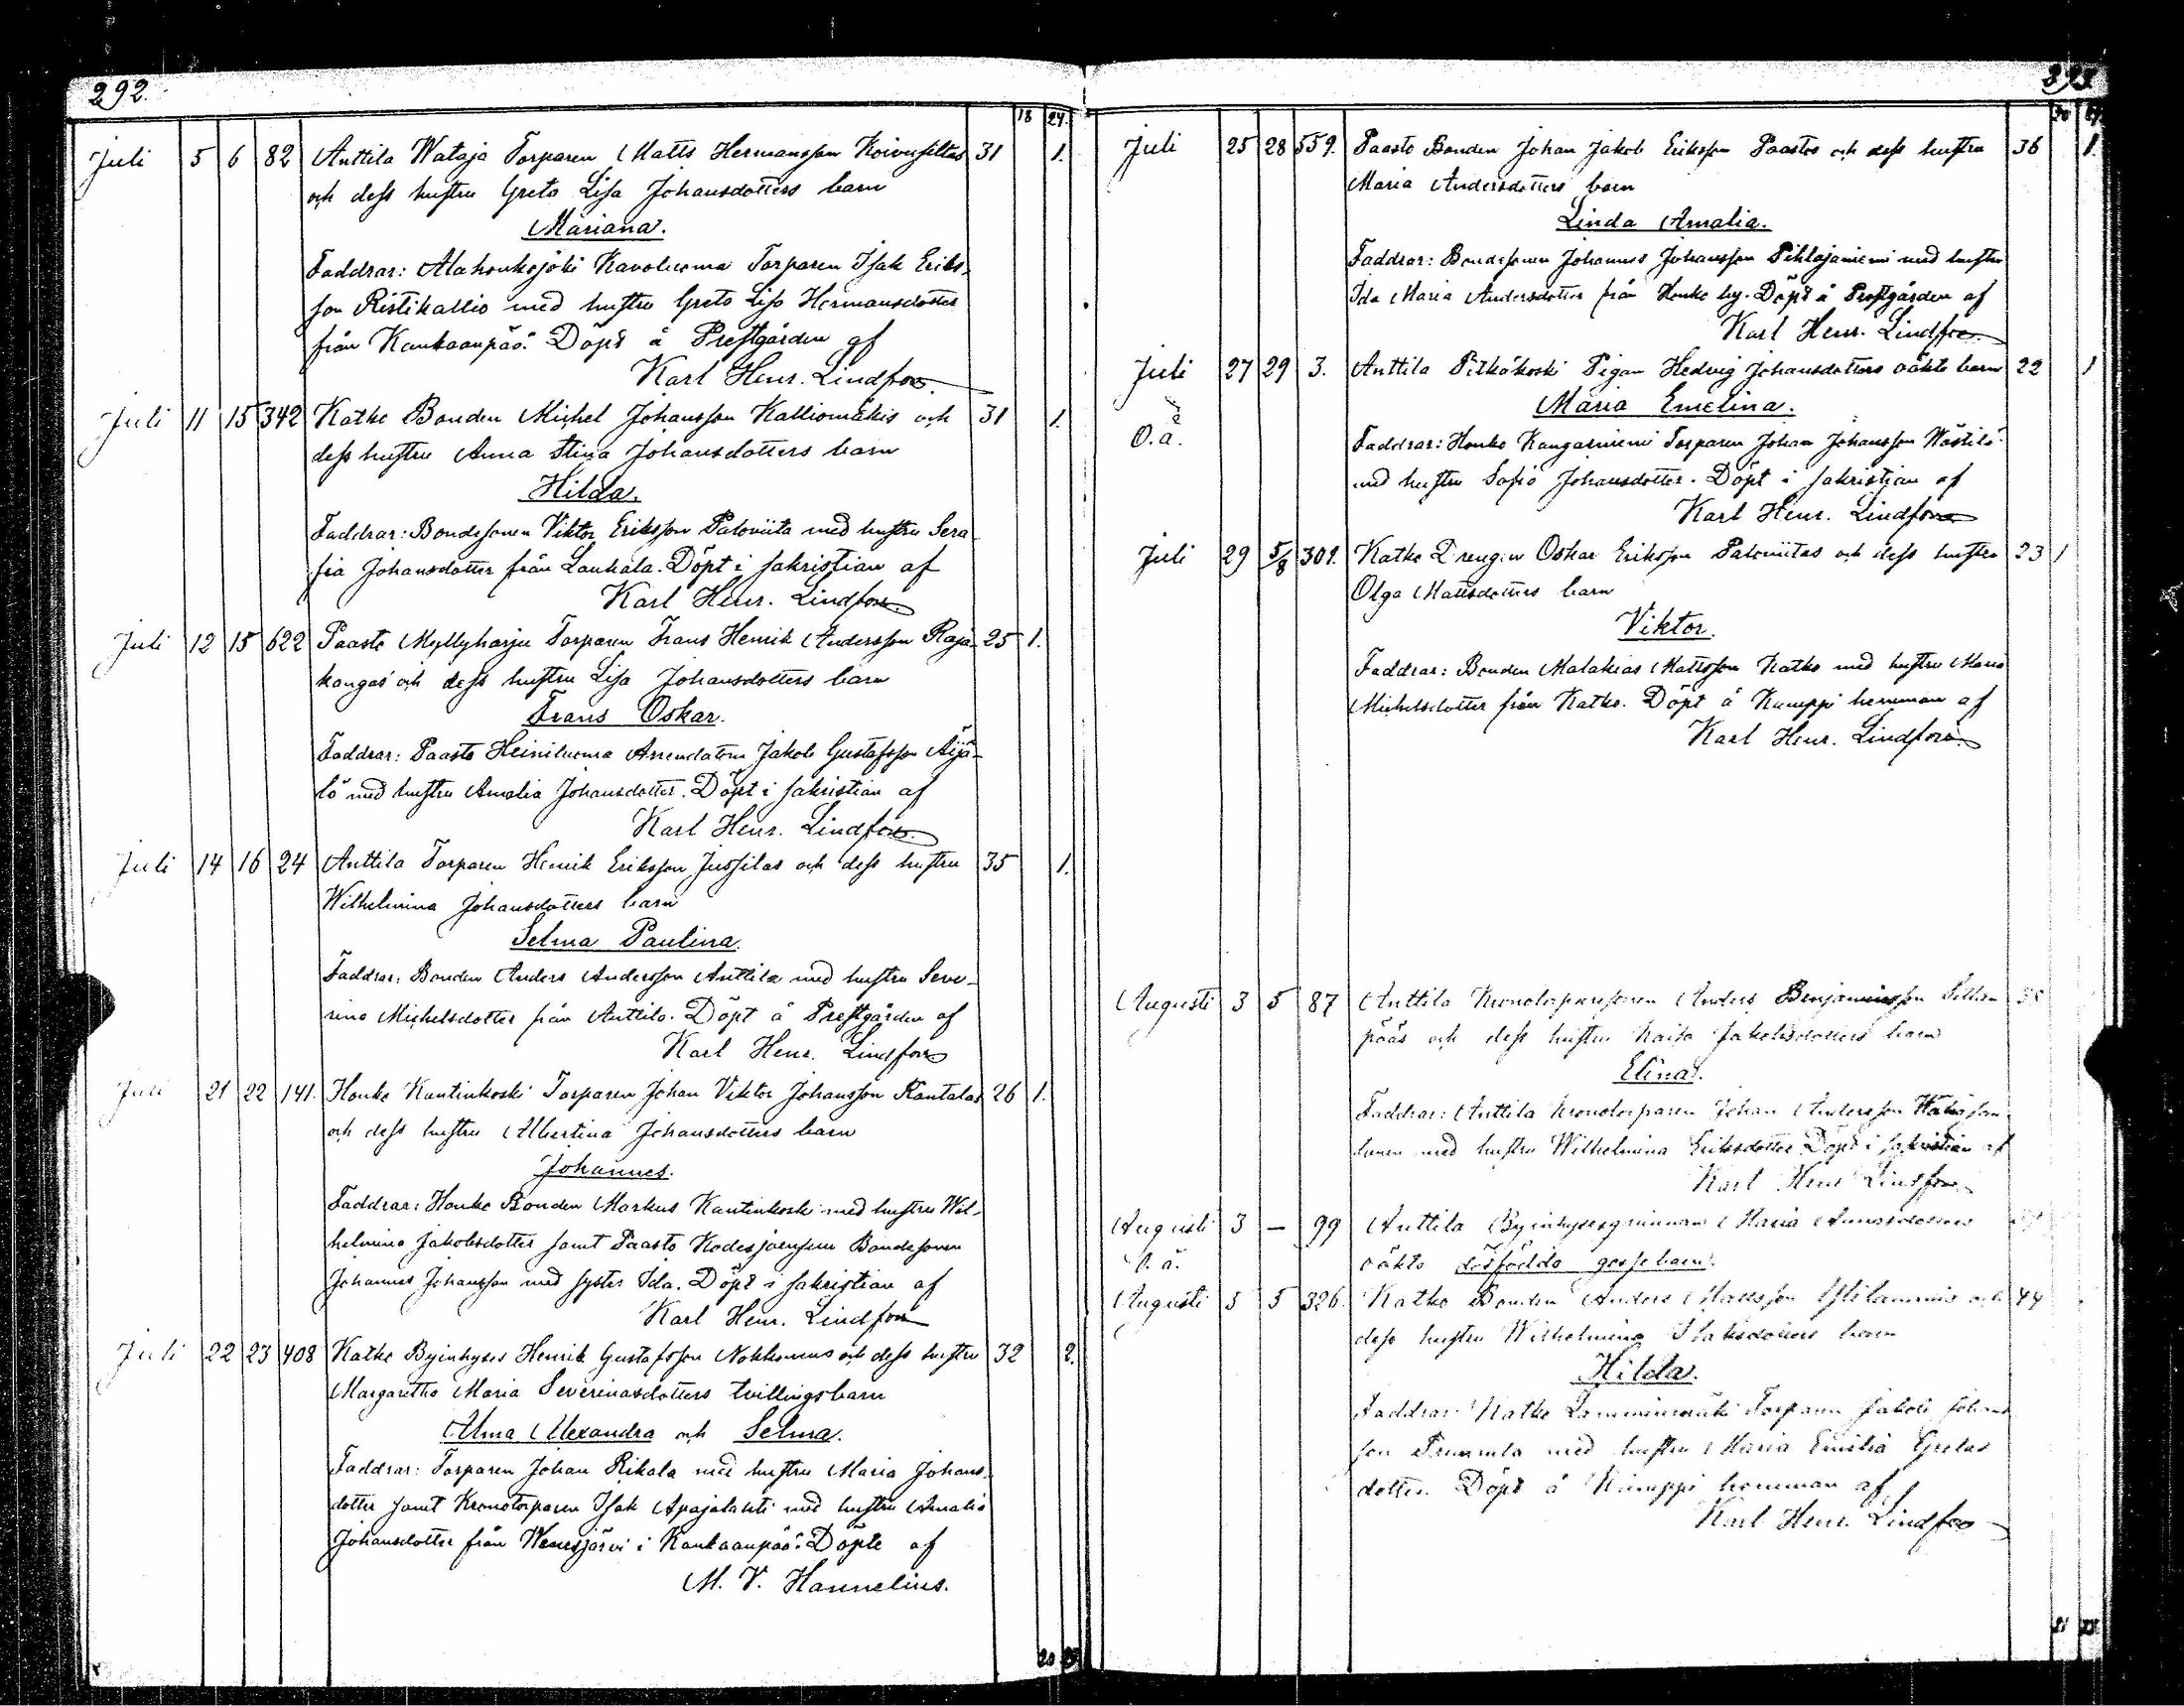 292.
18 24.
Juli 5 6 82 Anttila Wataja Torparen Matts Hermansson Koivusiltas 31 1.
och dess hustru Greta Lisa Johansdotters barn
Mariana.
Faddrar: Alahonkajoki Kavoluoma Torparen Isak Eriks-
son Ristikallio med hustru Greta Lisa Hermansdotter
från Kankaanpää. Döpt å Prestgården af
Karl Henr. Lindfors
Juli 11 15 342 Katko Bonden Michel Johansson Kalliomäkis och 31 1.
dess hustru Anna Stina Johansdotters barn
Hilda.
Faddrar: Bondesonen Viktor Eriksson Paloviita med hustru Sera
fia Johansdotter från Laukala. Döpt i sakristian af
Karl Henr. Lindfors
Juli 12 15 622 Paasto Myllyharju Torparen Frans Henrik Andersson Raja- 25 1.
kangas och dess hustru Lisa Johansdotters barn
Frans Oskar.
Faddrar: Paasto Heiniluoma Arrendatorn Jakob Gustafsson Äijä-
lä med hustru Amalia Johansdotter. Döpt i sakristian af
Karl Henr. Lindfors
Juli 14 16 24 Anttila Torparen Henrik Eriksson Jussilas och dess hustru 35 1.
Wilhelmina Johansdotters barn
Selma Paulina.
Faddrar: Bonden Anders Andersson Anttila med hustru Seve-
rina Michelsdotter från Anttila. Döpt å Prestgården af
Karl Henr. Lindfors
Juli 21 22 141. Honko Kantinkoski Torparen Johan Viktor Johansson Rantalas 26 1.
och dess hustru Albertina Johansdotters barn
Johannes.
Faddrar: Honko Bonden Markus Kantinkoski med hustru Wil-
helmina Jakobsdotter samt Paasto Bondesonen
Johannes Johansson med syster Ida. Döpt i sakristian af
Karl Henr. Lindfors
Juli 22 23 408 Katko Byinhyses Henrik Gustafsson Nokkonens och dess hustru 32 2.
Margaretha Maria Severinasdotters tvillingsbarn
Alma Alexandra och Selma.
Faddrar: Torparen Johan Rikala med hustru Maria Johans-
dotter samt Kronotorparen Isak Apajalahti med hustru Amalia
Johansdotter från Wenesjärvi i Kankaanpää. Döpte af
M. V. Hannelius.
20
293
Juli 25 28 559. Paasto Bonden Johan Jakob Eriksson Paastos och dess hustru 36 1.
Maria Andersdotters barn
Linda Amalia.
Faddrar: Bondesonen Johannes Johansson Pihlajaniemi med hustru
Ida Maria Andersdotter från Honko by. Döpt å Prestgården af
Karl Henr. Lindfors
Juli 27 29 3. Anttila Pitkäkoski Pigan Hedvig Johansdotters oäkta barn 22 1
Maria Emelina.
O.ä.
Faddrar: Honko Kangasniemi Torparen Johan Johansson Wästilä
med hustru Sofia Johansdotter. Döpt i sakristian af
Karl Henr. Lindfors
Juli 29 5/8 301. Katko Drengen Oskar Eriksson Paloviitas och dess hustru 23 1
Olga Mattsdotters barn
Viktor.
Faddrar: Bonden Malakias Mattsson Katko med hustru Maria
Michelsdotter från Katko. Döpt å Kamppi hemman af
Karl Henr. Lindfors
Augusti 3 5 87 Anttila Anders Benjaminsson Sillan
pääs och dess hustru Kaisa Jakobsdotters barn
Elina.
Faddrar: Anttila Kronotorparen Johan Andersson
med hustru Wilhelmina Eriksdotter. Döpt i sakristian af
Karl Henr Lindfors
Augusti 3 — 99 Anttila Byinhysesqvinnan Maria
O.ä. oäkta dödfödda gossebarn.
Augusti 5 5 326. Katko Bonden Anders Mattsson Ylilamminis och 44
dess hustru Wilhelmina Isaksdotters barn
Hilda.
Faddrar: Katko Lamminmäki Torparen Jakob Johans
son med hustru Maria Emilia Gretas
dotter. Döpt å Kamppi hemman af
Karl Henr. Lindfors
21